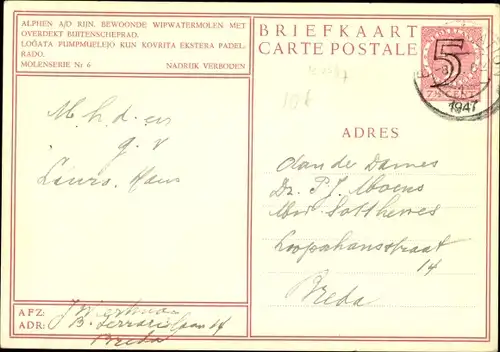 ALPHEN A/D RIJN. BEWOONDE WIPWATERMOLEN MET
OVERDEKT BUITENSCHEPRAD.
LOĜATA PUMPMUELEJO KUN KOVRITA EKSTERA PADEL-
RADO.
MOLENSERIE Nr 6 NADRUK VERBODEN
BRIEFKAART
CARTE POSTALE
5
7½ CENT
1947
M. h. d. en
g. v
Laurs. Haus
ADRES
Aan de Dames
Dr. P.J. Moens
Loopahansstraat
14
Breda
AFZ:
ADR: B. Ferrarislaan 14
Breda